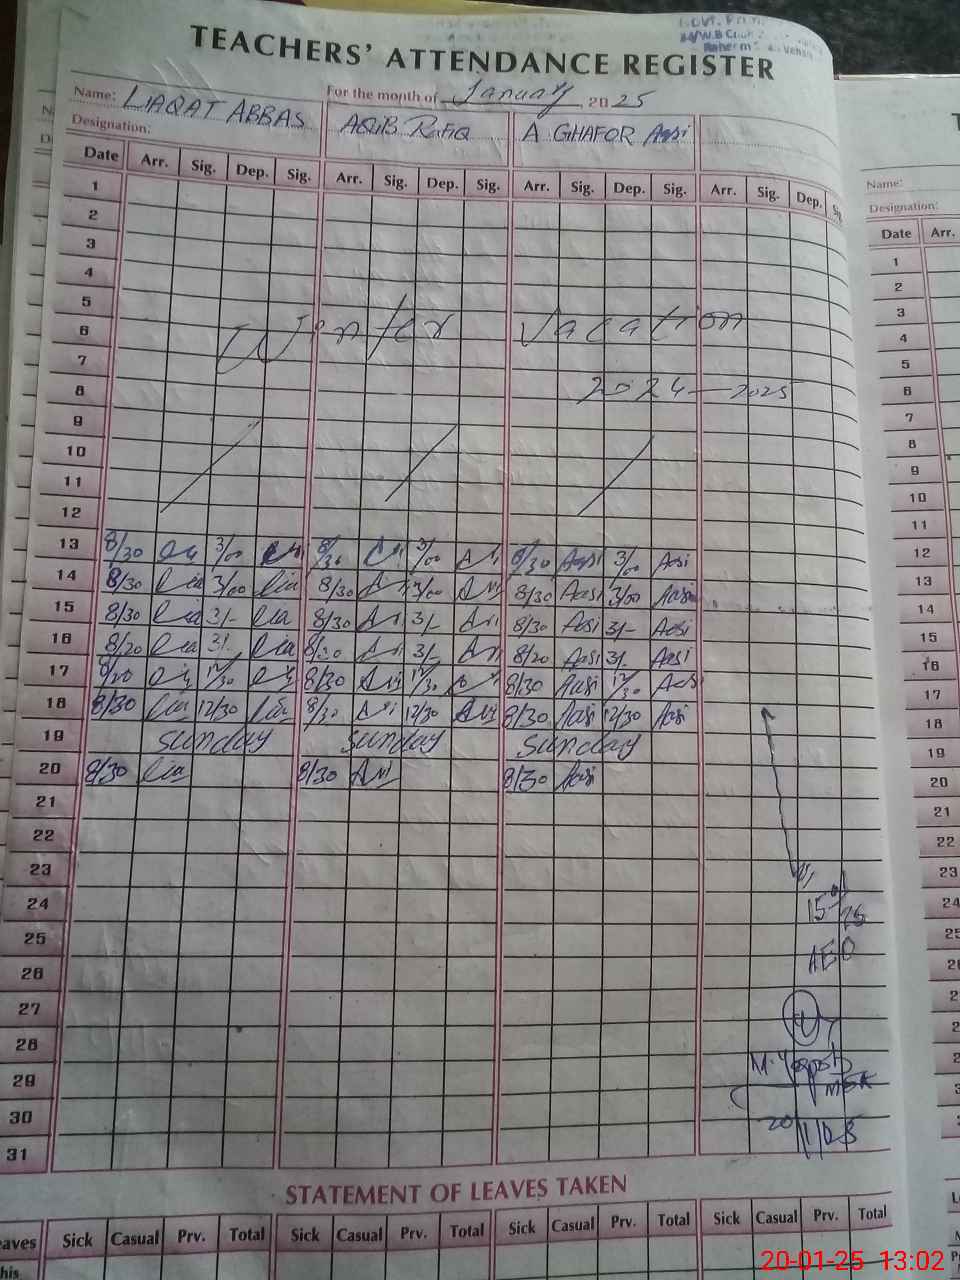 GOVT. Prim
TEACHERS' ATTENDANCE REGISTER
For the month of January, 2025
Name: LIAQAT ABBAS AQIB RAFIQ A GHAFOR Aasi
Designation:
Date Arr. Sig. Dep. Sig. Arr. Sig. Dep. Sig. Arr. Sig. Dep. Sig. Arr. Sig. Dep.
1
2
3
4
5
6 Winter Vacation
7
8 2024-2025
9
10
11
12
13 8/30 3/00 8/30 3/00 8/30 Aasi 3/00 Aasi
14 8/30 lia 3/00 lia 8/30 3/00 8/30 Aasi 3/00 Aasi
15 8/30 lia 3/- lia 8/30 3/- 8/30 Aasi 3/- Aasi
16 8/20 lia 3/- lia 8/30 3/- 8/20 Aasi 3/- Aasi
17 8/20 12/30 8/30 12/30 8/30 Aasi 12/30 Aasi
18 8/30 lia 12/30 lia 8/30 12/30 8/30 Aasi 12/30 Aasi
19 Sunday Sunday Sunday
20 8/30 lia 8/30 8/30 Aasi
21
22
23
24
25
26
27
28
29
30
31
15
AEO
20/1/25
STATEMENT OF LEAVES TAKEN
Sick Casual Prv. Total Sick Casual Prv. Total Sick Casual Prv. Total Sick Casual Prv. Total
Name:
Designation:
Date Arr.
1
2
3
4
5
6
7
8
9
10
11
12
13
14
15
16
17
18
19
20
21
22
23
24
20-01-25 13:02